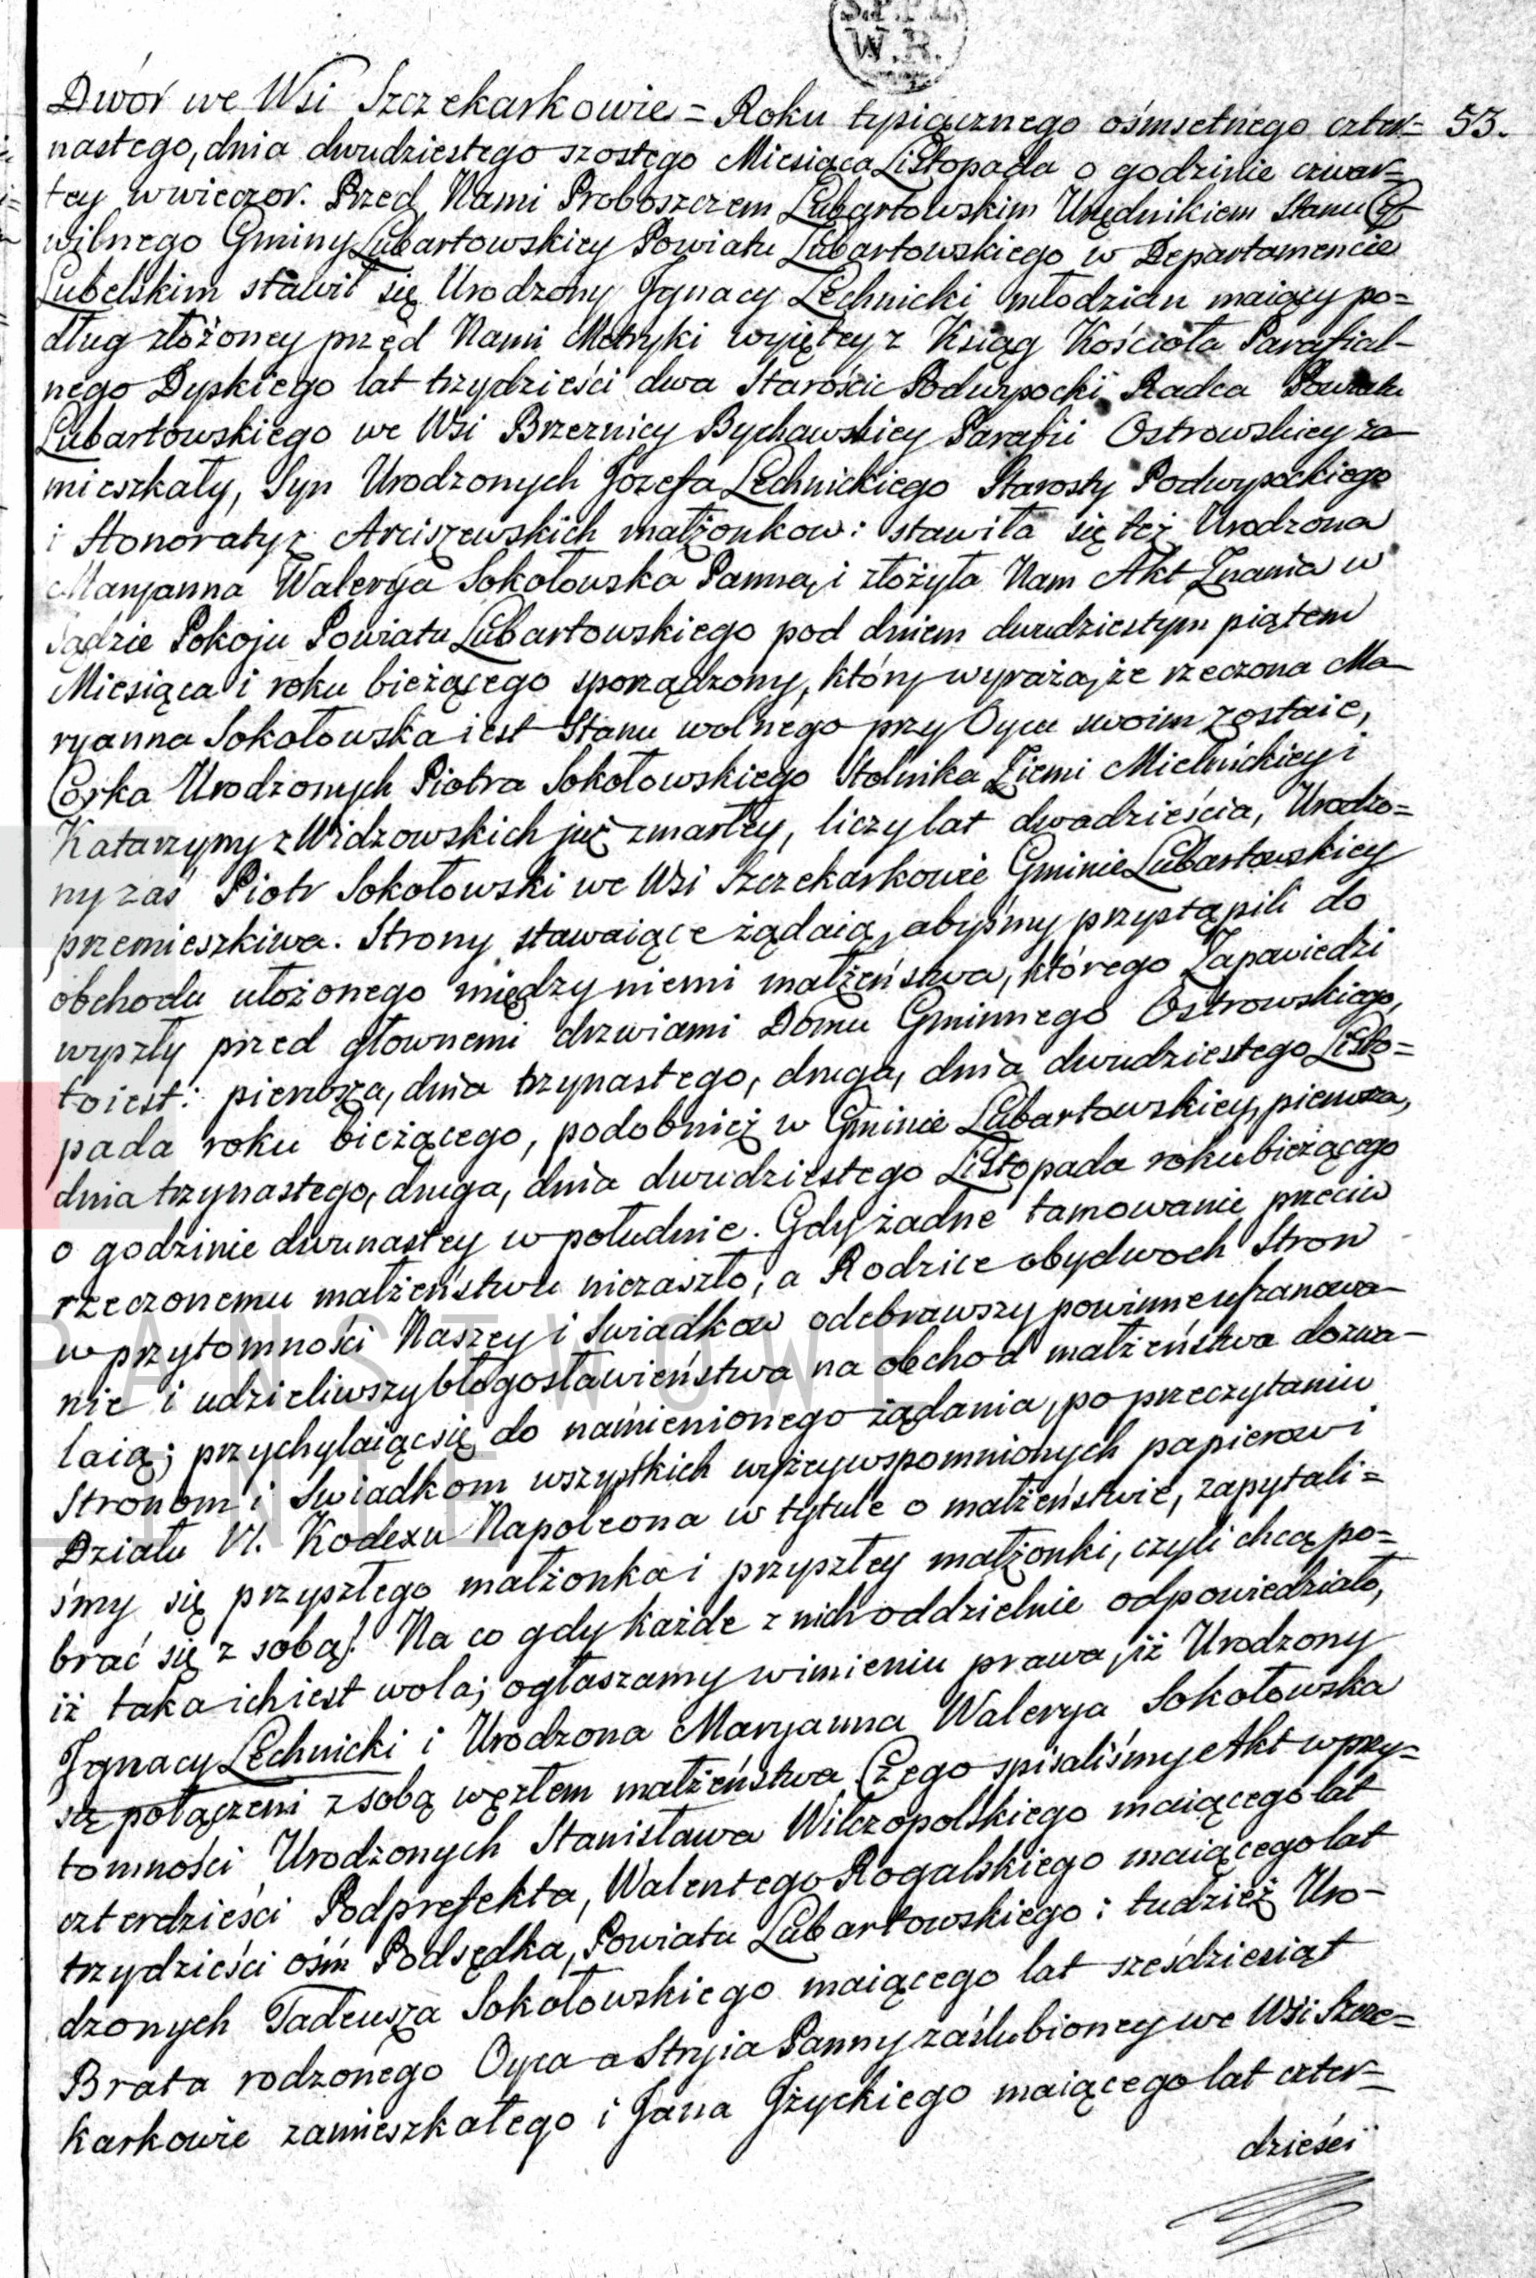 S.P.P.L.
W.R.
Dwór we Wsi Szczekarkowie = Roku tysiącznego ośmsetnego czter= 53.
nastego, dnia dwudziestego szostego Miesiąca Listopada o godzinie czwar=
tey w wieczor. Przed Nami Proboszczem Lubartowskim Urzędnikiem Stanu Cy
wilnego Gminy Lubartowskiey Powiatu Lubartowskiego w Departamencie
Lubelskim stawił się Urodzony Jgnacy Lechnicki młodzian maiący po=
dług złożoney przed Nami Metryki wyiętey z Ksiąg Kościoła Parafial-
nego Dyskiego lat trzydzieści dwa Starościc Podwysocki Radca Powiatu
Lubartowskiego we Wsi Brzeznicy Bychawskiey Parafii Ostrowskiey za
mieszkały, Syn Urodzonych Jozefa Lechnickiego Starosty Podwysockiego
i Honoraty z Arciszewskich małżonkow: stawiła się też Urodzona
Maryanna Walerya Sokołowska Panna, i złożyła Nam Akt Znania w
Sądzie Pokoju Powiatu Lubartowskiego pod dniem dwudziestym piątem
Miesiąca i roku bieżącego sporządzony, który wyraża, że rzeczona Ma
ryanna Sokołowska iest Stanu wolnego przy Oycu swoim zostaie,
Corka Urodzonych Piotra Sokołowskiego Stolnika Ziemi Mielnickiey i
Katarzyny z Widzowskich już zmarłey, liczy lat dwadzieścia, Urodzo=
ny zaś Piotr Sokołowski we Wsi Szczekarkowie Gminie Lubartowskiey
przemieszkiwa. Strony stawaiące żądaią, abyśmy przystąpili do
obchodu ułożonego między niemi małżeństwa, którego Zapowiedzi
wyszły przed głownemi drzwiami Domu Gminnego Ostrowskiego,
toiest: pierwsza, dnia trzynastego, druga, dnia dwudziestego Listo=
pada roku bieżącego, podobnież w Gminie Lubartowskiey, pierwsza,
dnia trzynastego, druga, dnia dwudziestego Listopada roku bieżącego
o godzinie dwunastey w południe. Gdy żadne tamowanie przeciw
rzeczonemu małżeństwu niezaszło, a Rodzice obydwoch Stron
w przytomności Naszey i Swiadkow odebrawszy powinne uszanowa-
nie i udzieliwszy błogosławieństwa na obchod małżeństwa dozwa-
laią; przychylaiąc się do namienionego żądania, po przeczytaniu
Stronom i Swiadkom wszystkich wyżey wspomnionych papierow i
Działu VI. Kodexu Napoleona w tytule o małżeństwie, zapytali=
śmy się przyszłego małżonka i przyszłey małżonki, czyli chcą po=
brać się z sobą? Na co gdy każde z nich oddzielnie odpowiedziało,
iż taka ich iest wola; ogłaszamy w imieniu prawa, iż Urodzony
Jgnacy Lechnicki i Urodzona Maryanna Walerya Sokołowska
są połączeni z sobą węzłem małżeństwa. Czego spisaliśmy Akt w przy=
tomności Urodzonych Stanisława Wilczopolskiego maiącego lat
czterdzieści Podprefekta, Walentego Rogalskiego maiącego lat
trzydzieści ośm Podsędka, Powiatu Lubartowskiego: tudzież Uro-
dzonych Tadeusza Sokołowskiego maiącego lat sześdziesiąt
Brata rodzonego Oyca a Stryia Panny zaślubioney we Wsi Szcze=
karkowie zamieszkałego i Jana Jżyckiego maiącego lat czter=
dzieści
PAŃSTWOWE